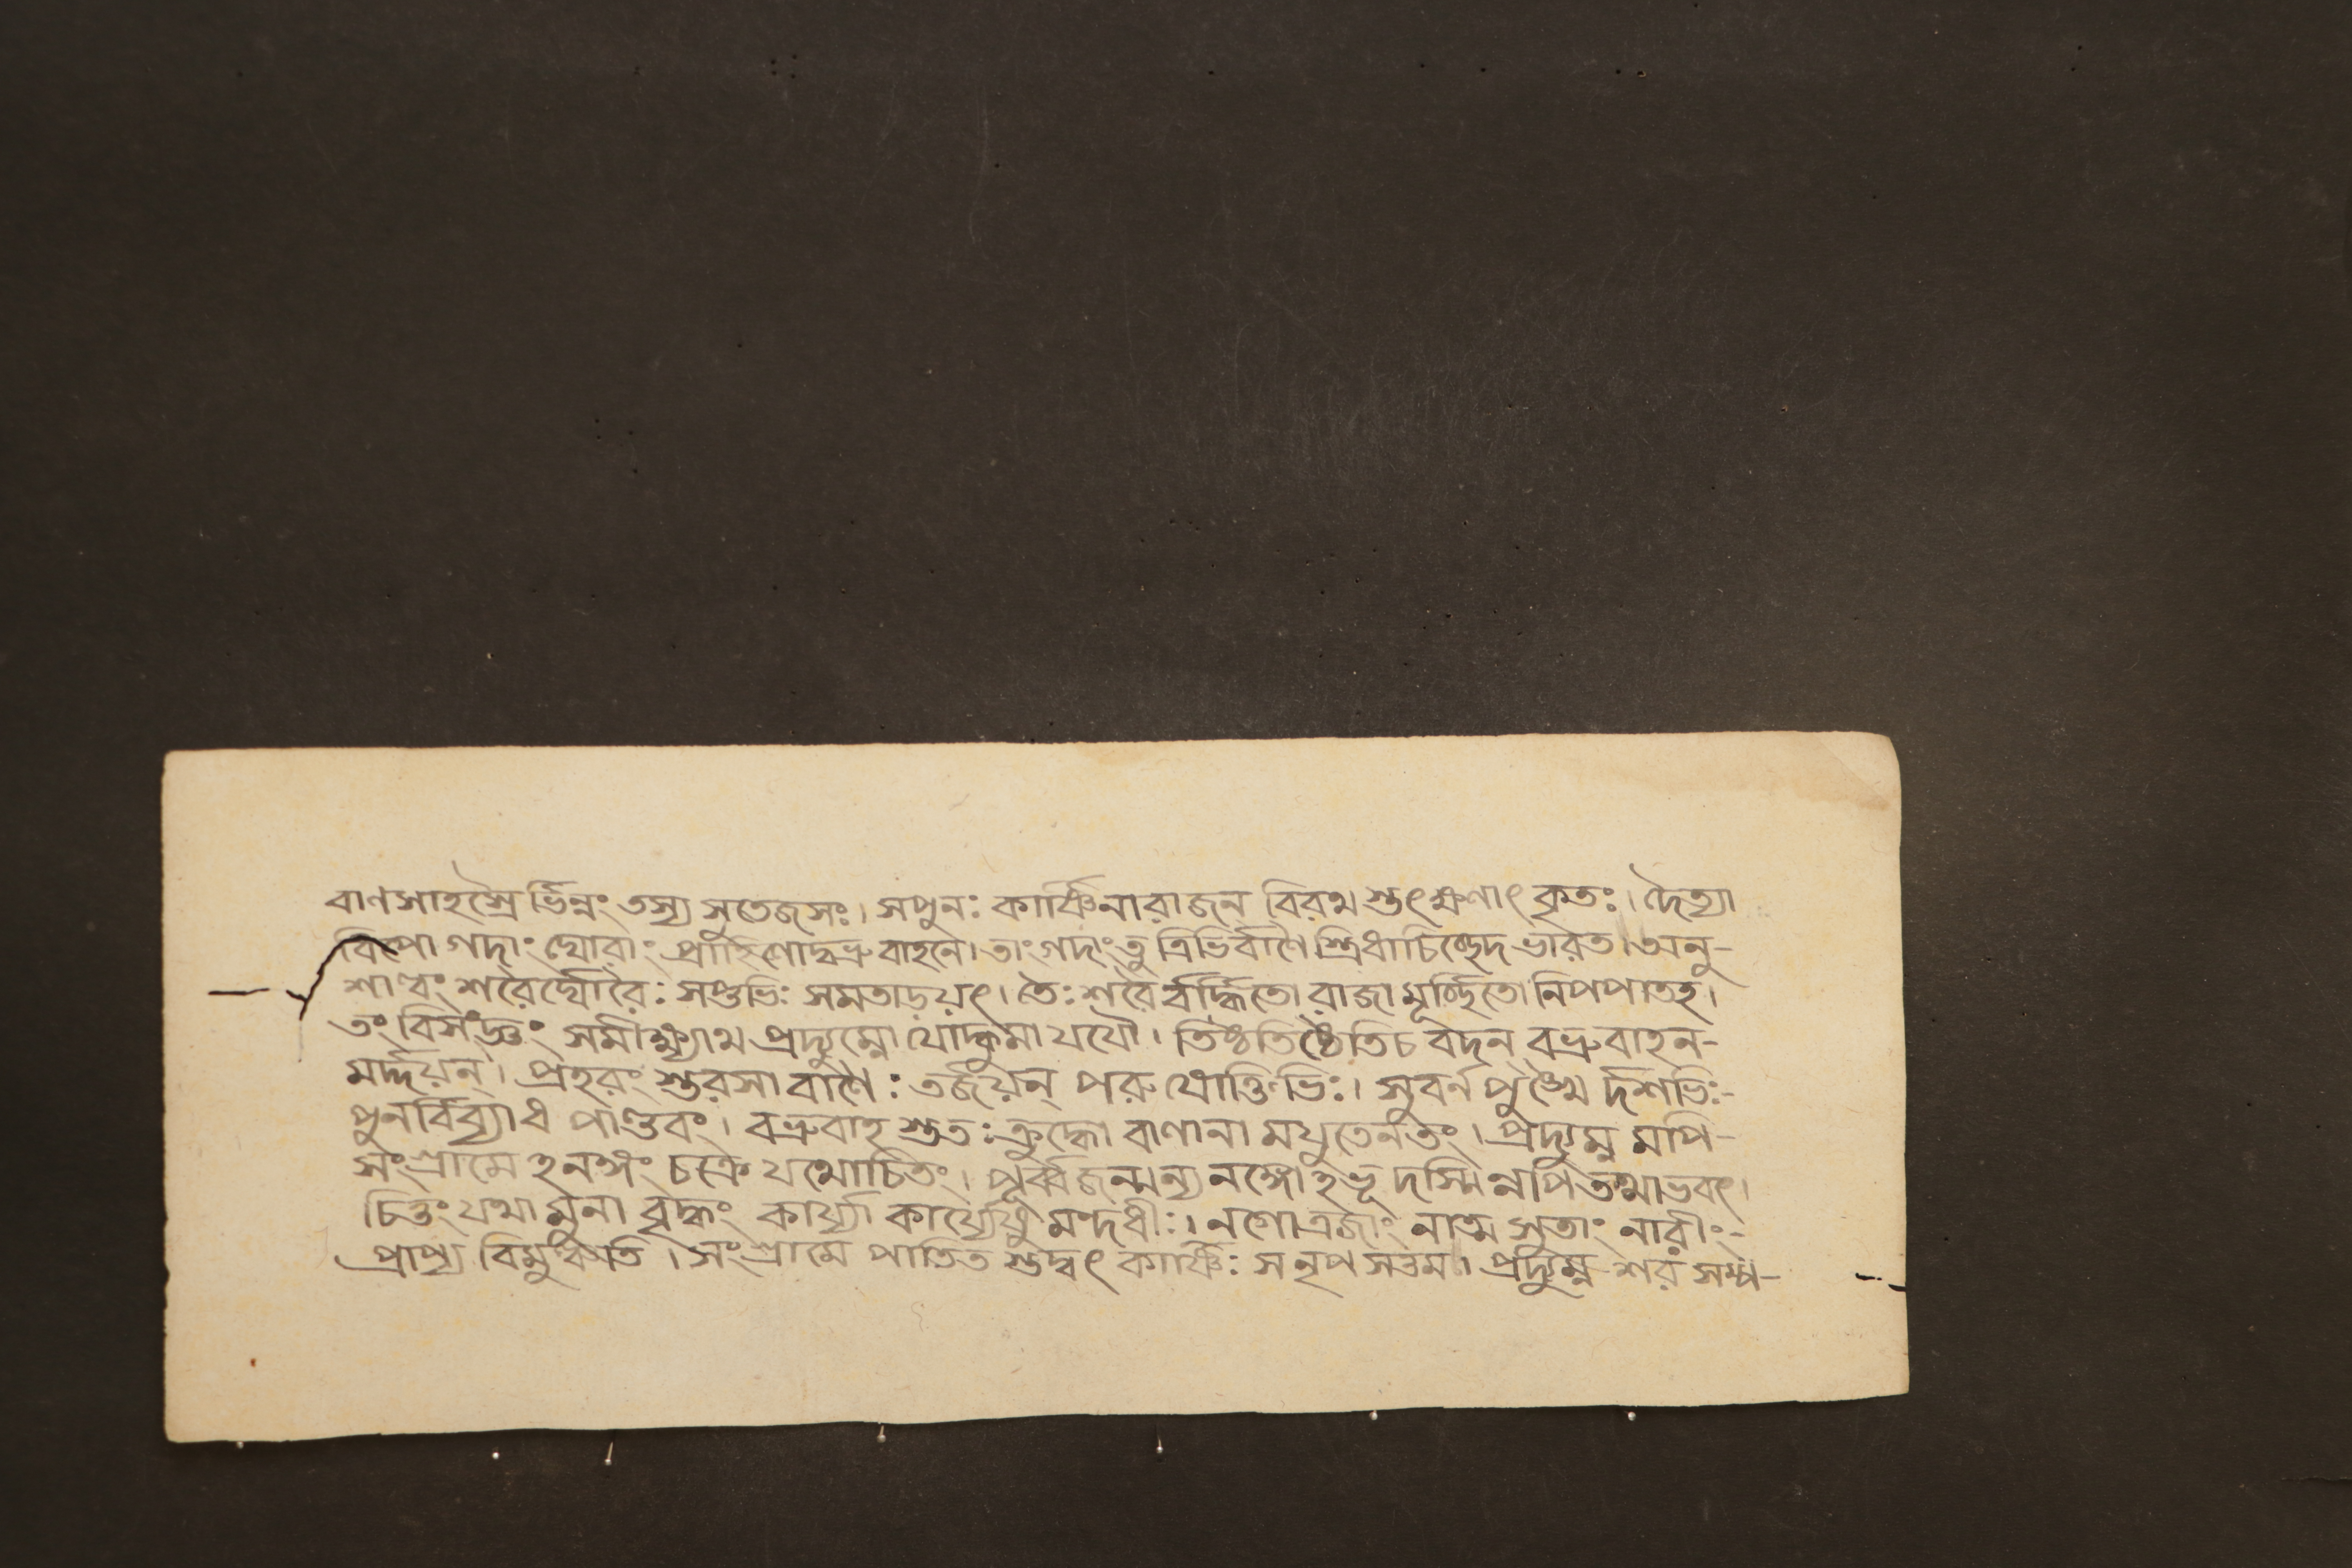 বাণসাহস্রৈর্ভিন্নং তস্য সুতেজসঃ। সপুনঃ কার্ষ্ণিনারাজন্ বিরথ স্তৎক্ষণাৎ কৃতঃ। দৈত্যা
ক্ষিপো গদাং ঘোরাং প্রাহিণোদ্বভ্রুবাহনে। তাং গদাংতু ত্রিভির্বাণৈ স্ত্রিধাচিচ্ছেদ ভারত। অনু-
শাল্বং শরৈর্ঘোরৈঃ সপ্তভিঃ সমতাড়য়ৎ। তৈঃ শরৈ র্বর্দ্ধিতো রাজা মূর্চ্ছিতো নিপপাতহ।
তং বিসংজ্ঞং সমীক্ষ্যাথ প্রদ্যুম্নো যোদ্ধুমা যযৌ। তিষ্ঠতিষ্ঠেতিচ বদন্ বভ্রুবাহন-
মর্দ্দয়ন্। প্রহরং স্তুরসা বাণৈঃ তর্জয়ন্ পরু ষোক্তিভিঃ। সুবর্ন পুঙ্খৈ র্দশভিঃ-
পুনর্বিব্যাধ পাণ্ডবং। বভ্রুবাহ স্ততঃ ক্রুদ্ধো বাণানা মযুতেনতং। প্রদ্যুম্ন মপি-
সংগ্রামে হনঙ্গং চক্রে যথোচিতং। পূর্ব্বজন্মন্য নঙ্গোহভূ দস্মিন্নপি তথাভবৎ।
চিত্তং যথা মুনা বৃদ্ধং কার্য্যা কার্য্যেষু মন্দধীঃ। নগোত্রজাং নাত্ম সুতাং নারীং-
প্রাপ্য বিমুঞ্চতি। সংগ্রামে পাতিত স্তদ্বৎ কার্ষ্ণিঃ সনৃপ সত্তম। প্রদ্যুম্নে শরং সম্প-